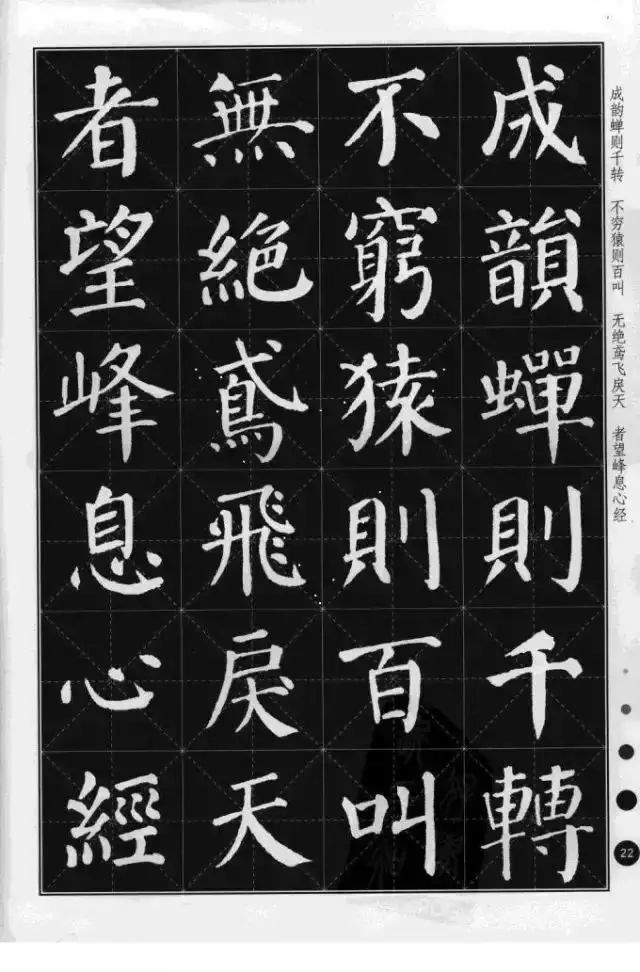 成韻蟬則千轉
不窮猿則百叫
無絕鳶飛戾天
者望峰息心經
成韵蝉则千转 不穷猿则百叫 无绝鸢飞戾天 者望峰息心经
22